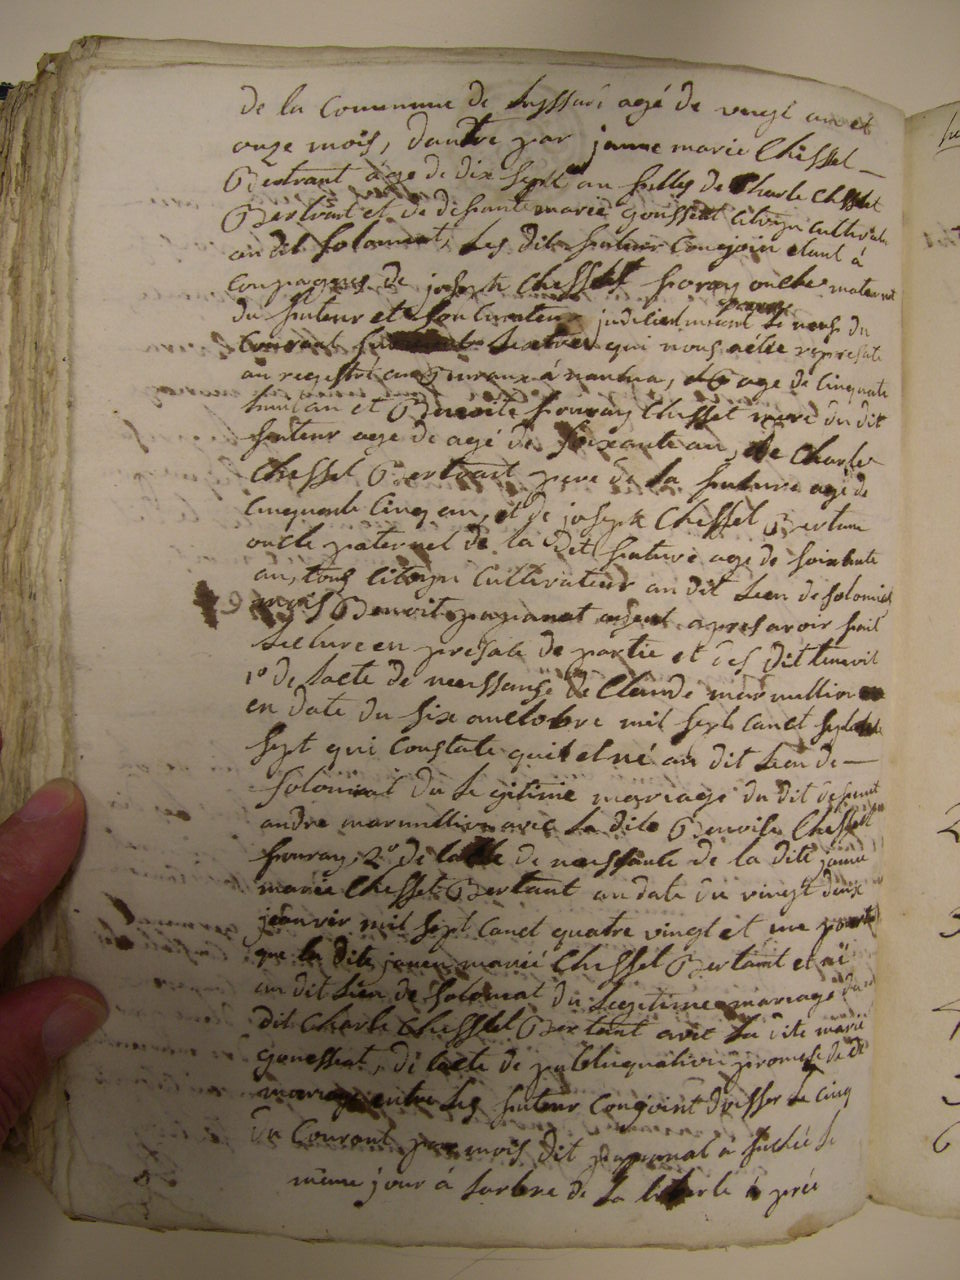 de la Commune de Leyssard agé de vingt an et
onze mois, dautre par janne marie Chesset
Bertrant age de dix sept an filles de Charle Chesset
Bertrant et de defuante marie goussent citoyn cultivat
au dit Solomiat, les dit futeur conjoin etant à
conpagnes de joseph Chesset foray oncle maternel
du futeur et son curateur judiciel, nt le neuf du
Courant qui nous aétée represate
au registre au Bureaux à nantua, age de Cinquate
huit an et Benoite fouray Chesset mere du dit
futeur age de agé de soixante an, de Charle
Chesset Bertrant pere de la future agé de
Cinquante Cinq an, et de joseph Chesset Bertran
oncle paternel de la dit future age de soixante
an, tous citoyn Cultivateur au dit Lieu de solomiat
mois Benoit agent apres avoir fait
Lecture en presate de partie et des dit temoit
1º de lacte de neussange de Claude marmillion
en date du six auctobre mil sept canct septante
sept qui constate quil et né au dit Lieu de
Solomiat du Legitime mariage du dit defeunt
andre marmillion avec La dite Benoise Chesset
fouray, 2º de lacte de neussante de la dite janne
marie Chesset Bertrant an date du vingt deux
jeanvier mil sept canct quatre vingt et une porte
que la dite janne marie Chesset Bertant et né
au dit Lieu de Solomiat du Legitime mariage du
dit Charle Chesset Bertant avec La dite marie
goussent, di lacte de publiquation promese de
mariage entre Les futeur conjoint dresser Le cinq
du Courant par mois dit à fichée Le
même jour à larbre de La liberté à prée